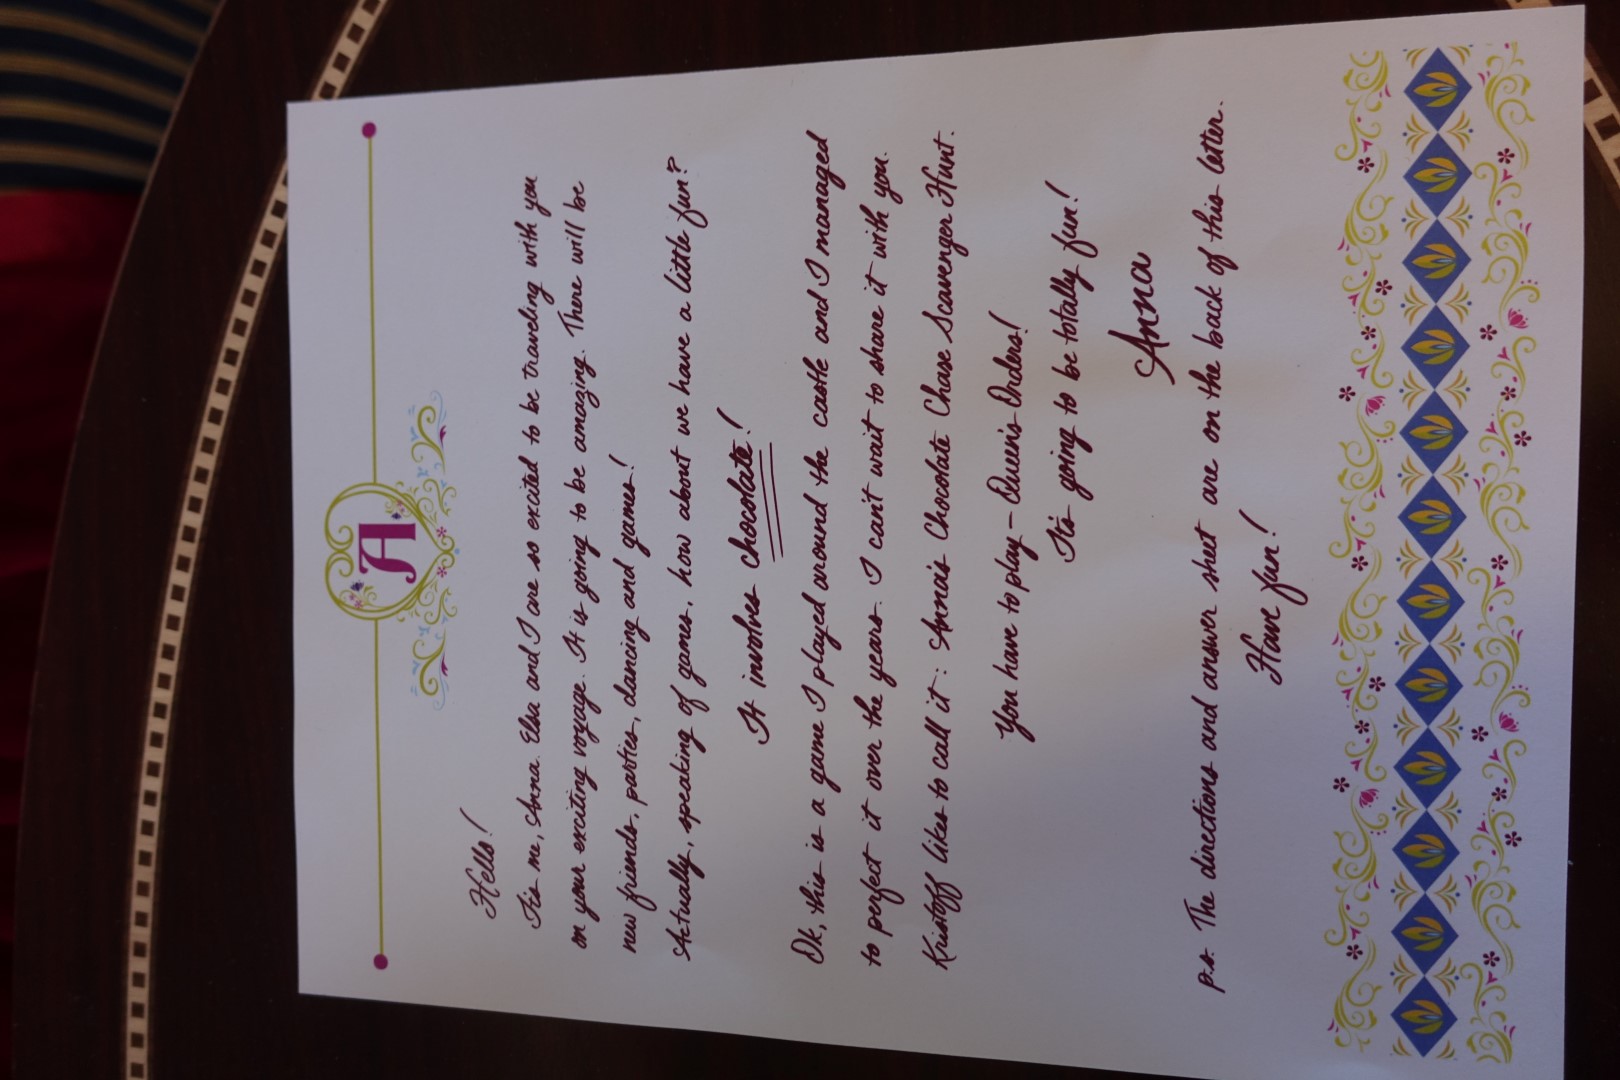 A
Hello!
It's me, Anna. Elsa and I are so excited to be traveling with you
on your exciting voyage. It is going to be amazing. There will be
new friends, parties, dancing and games!
Actually, speaking of games, how about we have a little fun?
It involves chocolate!
Ok, this is a game I played around the castle and I managed
to perfect it over the years. I can't wait to share it with you.
Kristoff likes to call it: Anna's Chocolate Chase Scavenger Hunt.
You have to play - Queen's Orders!
It's going to be totally fun!
Anna
p.s. The directions and answer sheet are on the back of this letter.
Have fun!